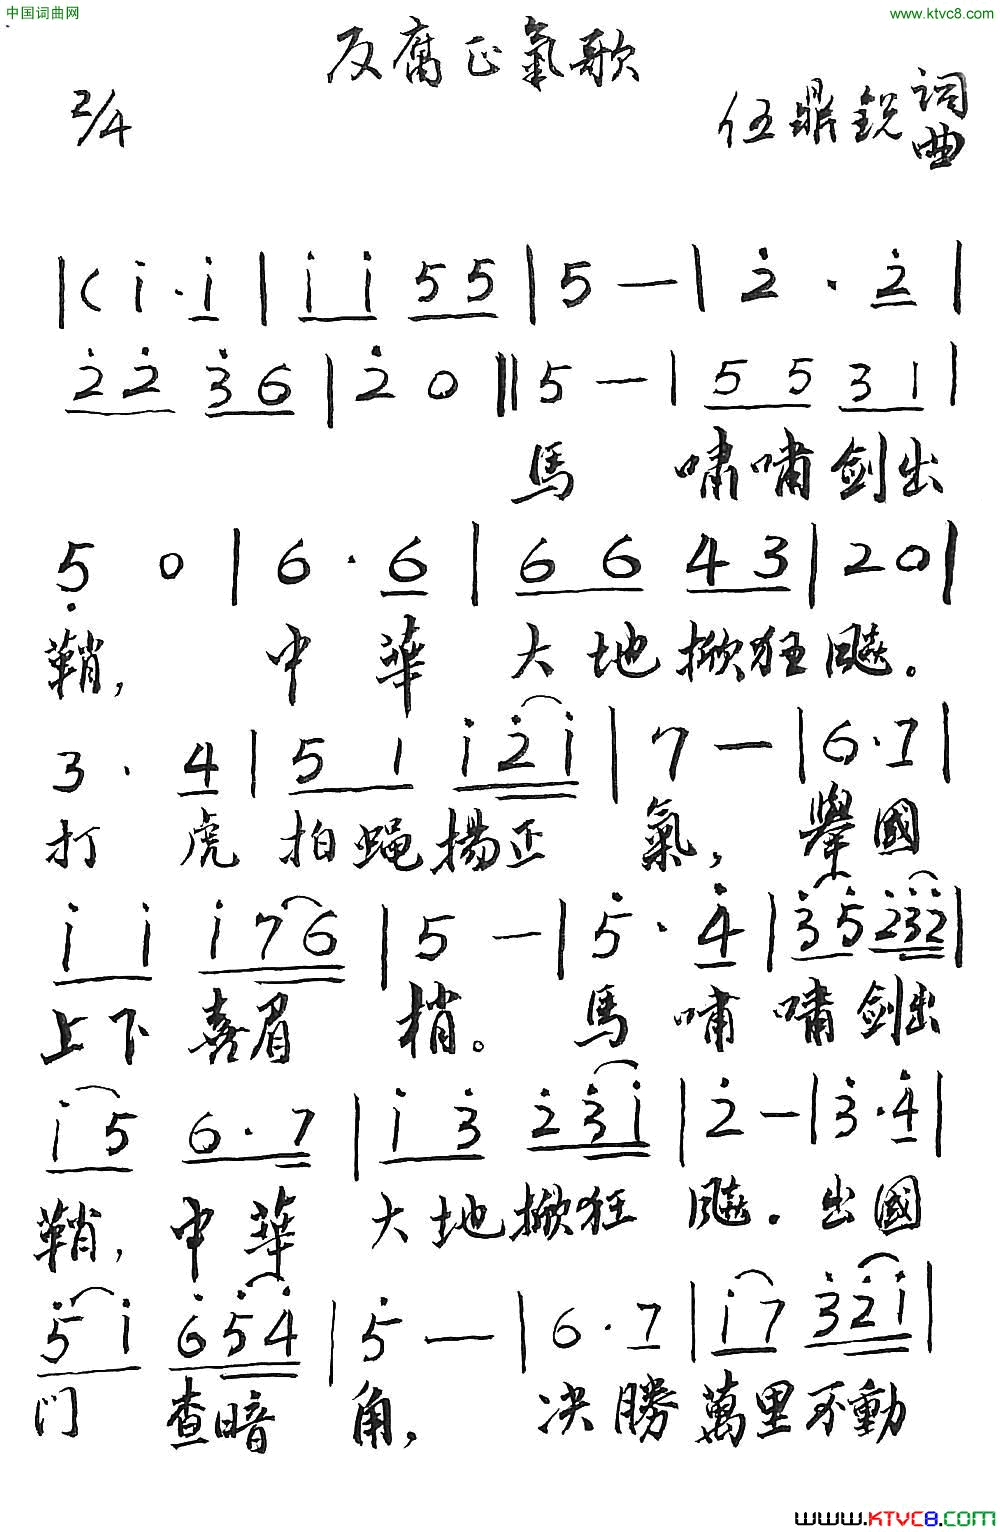 中国词曲网
www.ktvc8.com
反腐正氣歌
2/4
伍鼎銳 词曲
|( i · i | i i 5 5 | 5 — | 2̇ · 2̇ |
2̇ 2̇ 3̇ 6 | 2̇ 0 || 5 — | 5 5 3 1 |
馬 嘯嘯劍出
5̣ 0 | 6 · 6 | 6 6 4 3 | 2 0 |
鞘， 中 華 大地掀狂飈。
3 · 4 | 5 1 i 2̇ i | 7 — | 6 · 7 |
打 虎 拍蝇揚正 氣，舉國
i i i 7 6 | 5 — | 5̇ · 4̇ | 3̇ 5̇ 2̇ 3̇ 2̇ |
上下 喜眉 梢。 馬 嘯 嘯劍出
i 5 6 · 7 | i 3̇ 2̇ 3̇ i | 2̇ — | 3̇ · 4̇ |
鞘，中華 大地掀狂 飈．出國
5̇ i 6̇ 5̇ 4̇ | 5̇ — | 6 · 7 | i 7 3̇ 2̇ i |
门 查暗 角， 决勝萬里不動
www.KTVC8.com